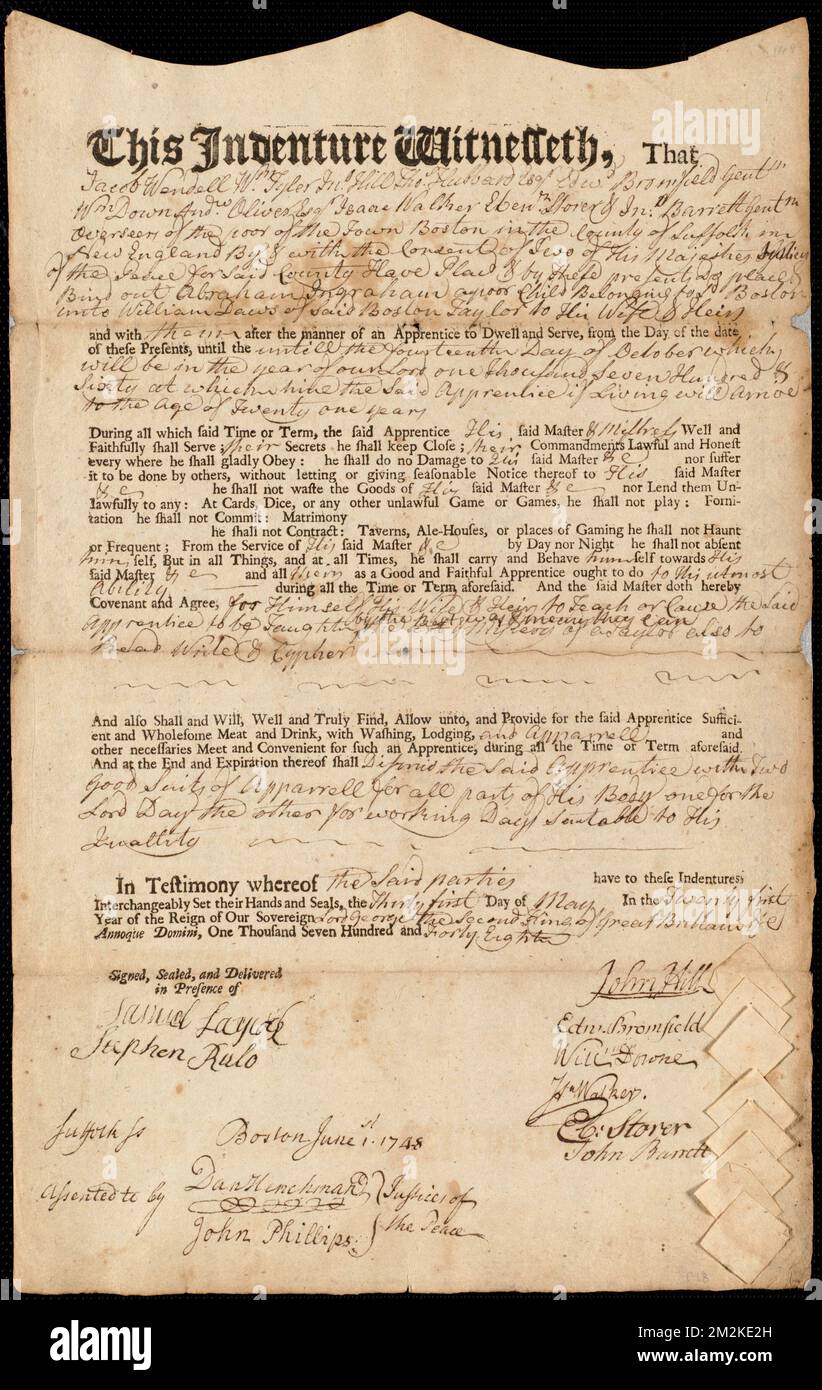 This Indenture Witnesseth, That
Jacob Wendell Wm. Tyler Jno. Hill Tho. Hubbard Esqs Edwd. Bromfield Gentn
Wm Down Andw Oliver Esqr Isaac Walker Ebenr Storer & Jno. Barrett Gentn
Overseers of the poor of the Town Boston in the County of Suffolk in
New England By & with the Consent of Two of His Majesties Justices
of the Peace for Said County Have Plac'd & by these presents do place &
Bind out Abraham Ingraham a poor Child Belonging to sd. Boston
unto William Daws of said Boston Taylor to His Wife & Heirs
and with them after the manner of an Apprentice to Dwell and Serve, from the Day of the date
of these Presents, until the untill the fourteenth Day of October which
will be in the year of our Lord one Thousand Seven Hundred &
Sixty at which time the Said Apprentice if Living will Arrive
to the Age of Twenty one years
During all which said Time or Term, the said Apprentice His said Master & Mistress Well and
Faithfully shall Serve; their Secrets he shall keep Close; their Commandments Lawful and Honest
every where he shall gladly Obey: he shall do no Damage to His said Master &c nor suffer
it to be done by others, without letting or giving seasonable Notice thereof to His said Master
&c he shall not waste the Goods of His said Master &c nor Lend them Un-
lawfully to any: At Cards, Dice, or any other unlawful Game or Games, he shall not play: Forni-
tation he shall not Commit: Matrimony
he shall not Contract: Taverns, Ale-Houses, or places of Gaming he shall not Haunt
or Frequent; From the Service of His said Master &c by Day nor Night he shall not absent
him self, But in all Things, and at all Times, he shall carry and Behave him self towards His
said Master &c and all them as a Good and Faithful Apprentice ought to do to His utmost
Ability during all the Time or Term aforesaid. And the said Master doth hereby
Covenant and Agree, for Himself His Wife & Heirs to Teach or Cause the Said
Apprentice to be Taught by the best way & means they Can Mystery of a Taylor also to
Read Write & Cypher
And also Shall and Will, Well and Truly Find, Allow unto, and Provide for the said Apprentice Suffici-
ent and Wholesome Meat and Drink, with Washing, Lodging, and Apparrell and
other necessaries Meet and Convenient for such an Apprentice, during all the Time or Term aforesaid.
And at the End and Expiration thereof shall Dismiss the Said Apprentice with Two
Good Suits of Apparrell for all parts of His Body one for the
Lord Day the other for working Days Sutable to His
Quallity
In Testimony whereof the Said parties have to these Indentures
Interchangeably Set their Hands and Seals, the Thirty first Day of May In the Twenty first
Year of the Reign of Our Sovereign Lord George the Second King of Great Brittain &c
Annoque Domini, One Thousand Seven Hundred and Forty Eight
Signed, Sealed, and Delivered
in Presence of
Samuel
Stephen Rulo
John Hill
Edw. Bromfield
Willm Downe
Isa Walker.
Eb: Storer
John Barrett
Suffolk Ss Boston June 1st. 1748
Assented to by Dan Henchman Justices of
John Phillips the Peace
alamy
Image ID: 2M2KE2H
www.alamy.com